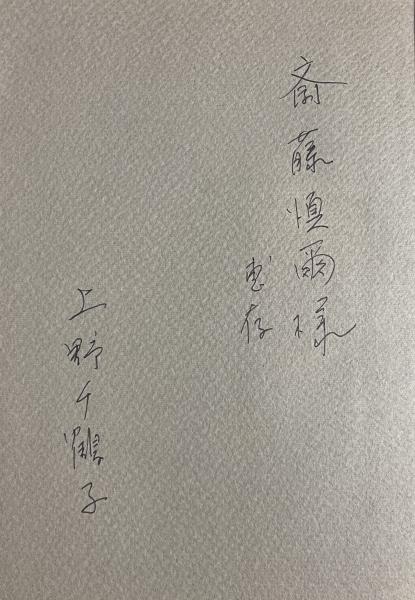 斎藤愼爾様
恵存
上野千鶴子